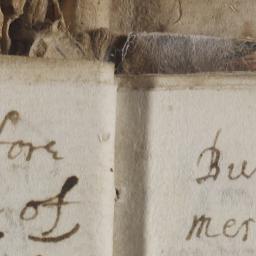 fore
of
Bu
mer